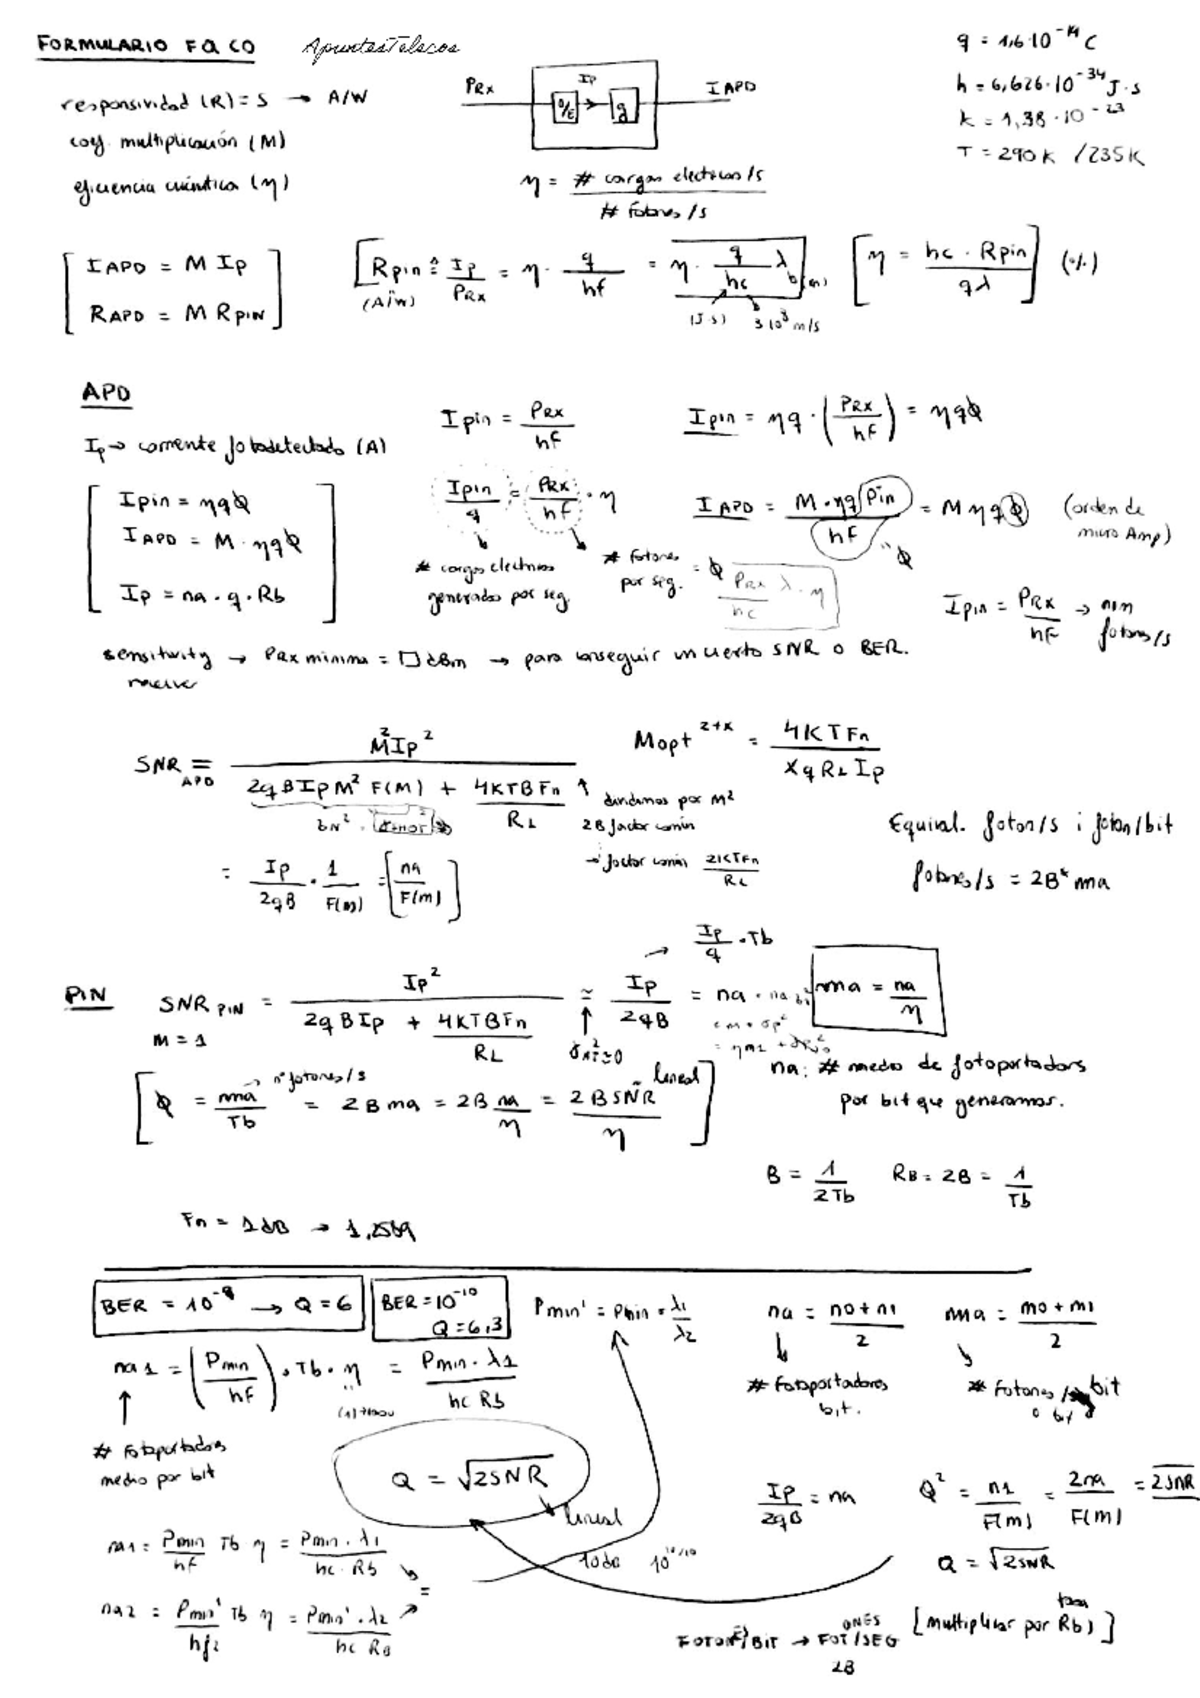 FORMULARIO FACO ApuntesTelecos
q = 1,6·10^-19 C
h = 6,626·10^-34 J·s
k = 1,38·10^-23
T = 290 K /235K
responsividad (R) = S → A/W
coef. multiplicación (M)
eficiencia cuántica (η)
PRx O/E Ip g IAPD
η = # cargas electricas/s / # fotones/s
[ IAPD = M Ip
RAPD = M RPIN ]
[ Rpin ≙ Ip/PRx = η · q/hf = η · q/hc λ (m)
(A/W) (J·s) 3·10^8 m/s
[ η = hc · Rpin / qλ ] (%)
APD
Ip → corriente fotodetectada (A)
[ Ipin = ηqΦ
IAPD = M · ηqΦ
Ip = na · q · Rb ]
Ipin = PRx/hf
Ipin/q = PRx/hf · η
# cargas electricas generadas por seg.
# fotones por seg. = Φ
PRx/hc λ · η
Ipin = ηq · (PRx/hf) = ηqΦ
IAPD = M·ηq Pin / hf = MηqΦ (orden de micro Amp)
"Φ
Ipin = PRx/hf → num fotones/s
sensitivity → PRx minima = □ dBm → para conseguir un cierto SNR o BER.
SNR APD = M²Ip² / 2qBIpM² F(M) + 4KTBFn/RL
↑ dividimos por M²
2B factor común
→ factor común 2KTFn/RL
= Ip/2qB · 1/F(M) = [na/F(M)]
Mopt^2+x = 4KTFn / XqRLIp
Equival. foton/s i foton/bit
fotones/s = 2B* ma
PIN SNR PIN = Ip² / 2qBIp + 4KTBFn/RL ≃ Ip/2qB = na
M = 1
σ²NT≃0
→ Ip/q · Tb
ma = na/η
na: # medio de fotoportadores por bit que generamos.
[ Φ = ma/Tb → nº fotones/s = 2Bma = 2B na/η = 2BSNR/η lineal ]
B = 1/2Tb RB = 2B = 1/Tb
Fn = 1dB → 1,2589
BER = 10^-9 → Q = 6
BER = 10^-10 Q = 6,3
Pmin' = Pmin · λ1/λ2
na = n0+n1 / 2
# fotoportadores bit.
ma = m0+m1 / 2
# Fotones / bit
na1 = (Pmin/hf) · Tb · η = Pmin·λ1 / hc Rb
# Fotoportadores medio por bit
Q = √2SNR
lineal
10^10/10
Ip/2qB = na
Q² = n1/F(m) = 2na/F(m) = 2SNR
Q = √2SNR
na1 = Pmin/hf Tb η = Pmin·λ1 / hc·Rb
=
na2 = Pmin'/hf2 Tb η = Pmin'·λ2 / hc RB
FOTON/BIT → FOTONES/SEG [multiplicar por Rb)]
2B